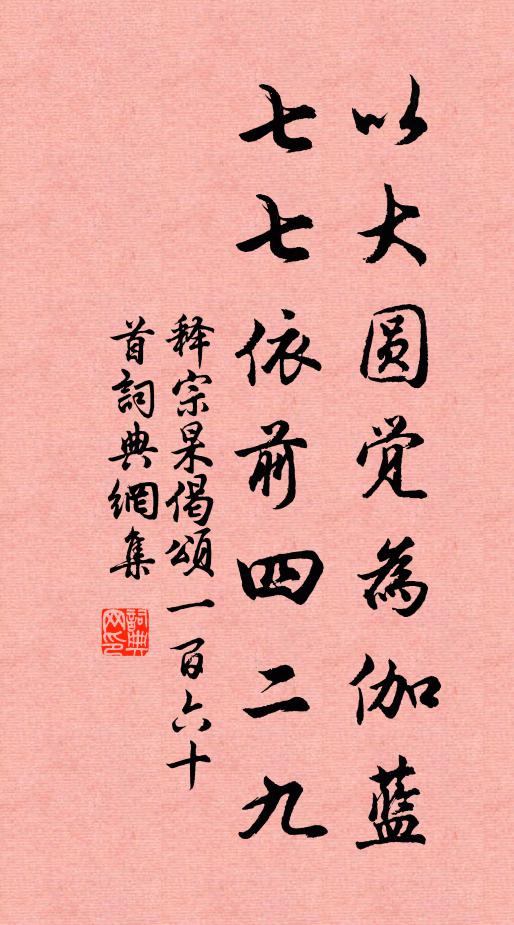 以大圆觉為伽蓝
七七依前四二九
释宗杲偈頌一百六十
首詞典網集
詞典
网印